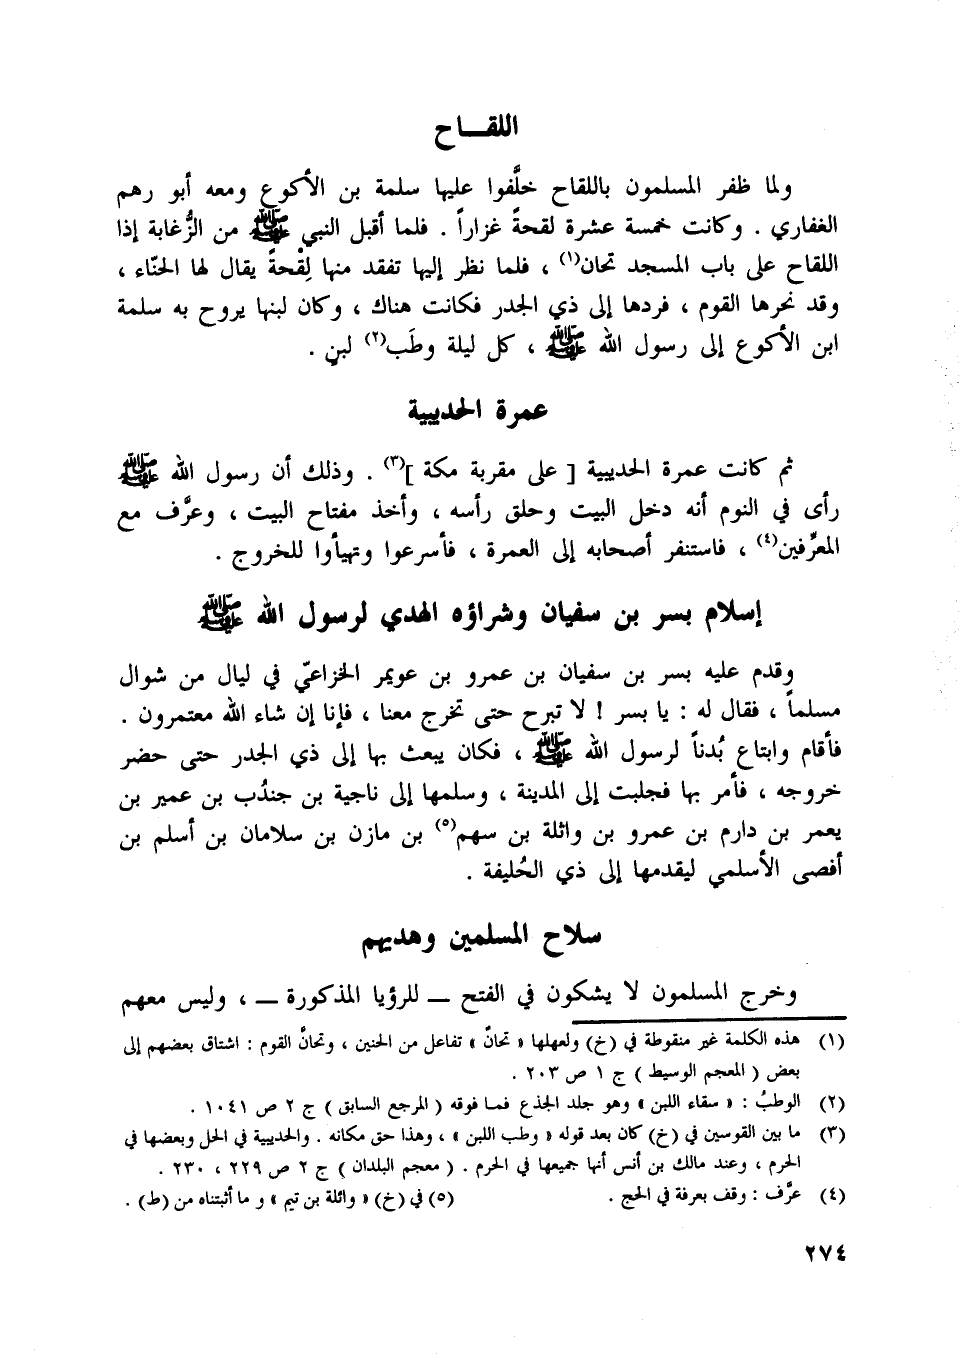 اللقـــاح
ولما ظفر المسلمون باللقاح خلَّفوا عليها سلمة بن الأكوع ومعه أبو رهم
الغفاري . وكانت خمسة عشرة لقحةً غزاراً . فلما أقبل النبي ﷺ من الزُّغابة إذا
اللقاح على باب المسجد تحان(١) ، فلما نظر إليها تفقد منها لِقْحةً يقال لها الحنّاء ،
وقد نحرها القوم ، فردها إلى ذي الجدر فكانت هناك ، وكان لبنها يروح به سلمة
ابن الأكوع إلى رسول الله ﷺ ، كل ليلة وطَب(٢) لبنٍ .
عمرة الحديبية
ثم كانت عمرة الحديبية [ على مقربة مكة ](٣) . وذلك أن رسول الله ﷺ
رأى في النوم أنه دخل البيت وحلق رأسه ، وأخذ مفتاح البيت ، وعرَّف مع
المعرِّفين(٤) ، فاستنفر أصحابه إلى العمرة ، فأسرعوا وتهيأوا للخروج .
إسلام بسر بن سفيان وشراؤه الهدي لرسول الله ﷺ
وقدم عليه بسر بن سفيان بن عمرو بن عويمر الخزاعيّ في ليال من شوال
مسلماً ، فقال له : يا بسر ! لا تبرح حتى تخرج معنا ، فإنا إن شاء الله معتمرون .
فأقام وابتاع بُدناً لرسول الله ﷺ ، فكان يبعث بها إلى ذي الجدر حتى حضر
خروجه ، فأمر بها فجلبت إلى المدينة ، وسلمها إلى ناجية بن جندُب بن عمير بن
يعمر بن دارم بن عمرو بن واثلة بن سهم(٥) بن مازن بن سلامان بن أسلم بن
أفصى الأسلمي ليقدمها إلى ذي الحُليفة .
سلاح المسلمين وهديهم
وخرج المسلمون لا يشكون في الفتح ــ للرؤيا المذكورة ــ ، وليس معهم
(١) هذه الكلمة غير منقوطة في (خ) ولعهلها « تحانّ » تفاعل من الحنين ، وتحانَّ القوم : اشتاق بعضهم إلى
بعض ( المعجم الوسيط ) ج ١ ص ٢٠٣ .
(٢) الوطبُ : « سقاء اللبن » وهو جلد الجذع فما فوقه ( المرجع السابق ) ج ٢ ص ١٠٤١ .
(٣) ما بين القوسين في (خ) كان بعد قوله « وطب اللبن » ، وهذا حق مكانه . والحديبية في الحل وبعضها في
الحرم ، وعند مالك بن أنس أنها جميعها في الحرم . ( معجم البلدان ) ج ٢ ص ٢٢٩ ، ٢٣٠ .
(٤) عرَّف : وقف بعرفة في الحج . (٥) في (خ) « وائلة بن تيم » و ما أثبتناه من (ط) .
٢٧٤